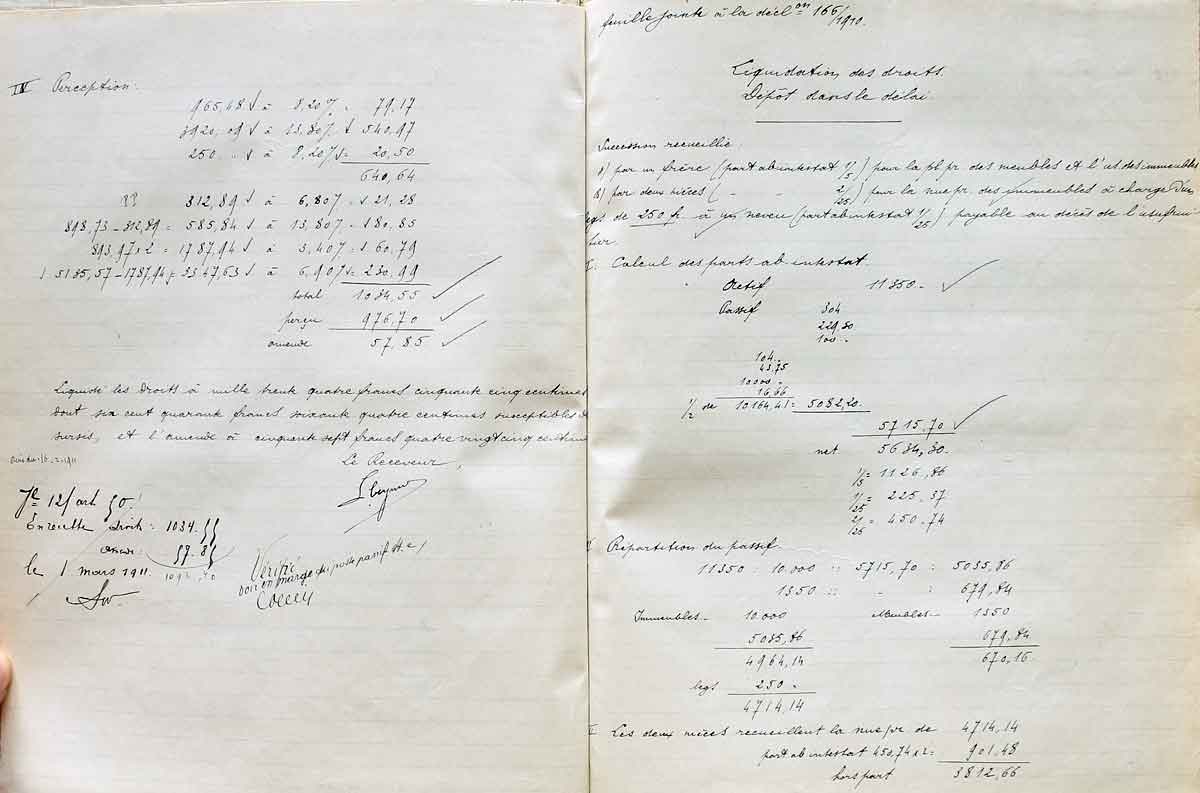 IV Perception.
965,48 √ à 8,20% = 79,17
3920,09 √ à 13,80% √ 540,97
250 √ à 8,20% √= 20,50
640,64
312,89 √ à 6,80% √ 21,28
898,73 - 312,89 = 585,84 √ à 13,80% - 80,85
893,97 x 2 = 1787,94 √ à 3,40% = √ 60,79
5135,57 - 1787,94 = 3347,63 √ à 6,90% √= 230,99
total 1034,55
perçu 976,70
amende 57,85
Liquidé les Droits à mille trente quatre francs cinquante cinq centimes
dont six cent quarante francs soixante quatre centimes susceptibles de
sursis, et l'amende à cinquante sept francs quatre vingt cinq centim
Le Receveur,
12/ art 50!
En recette droit: 1034.55
amen: 57.85
le 1 mars 1911. 1092,40
Vérifié
voir en marge du poste passif
feuille jointe à la décl on 166/1910.
Liquidation des droits.
Dépôt dans le délai.
Succession recueillie
A) par un frère (part ab intestat 1/5) pour la pl. pr. des meubles et l'us. des immeubles
B) par deux nièces ( - - 2/25) pour la nue pr. des immeubles à charge d'un
legs de 250 f. à un neveu (part ab intestat 1/25) payable au décès de l'usufrui
tier.
I. Calcul des parts ab intestat.
Actif 11350 -
Passif 304
229,30
100 -
104 -
43,75
10000 -
16,66
1/2 de 10164,41 = 5082,20
5715,70
net 5634,30
1/5 = 1126,86
1/25 = 225,37
2/25 = 450,74
II. Répartition du passif.
11350 : 10.000 :: 5715,70 : 5035,86
1350 :: - : 679,84
Immeubles - 10.000 Meubles - 1350
5035,86 679,84
4964,14 670,16
legs 250 -
4714,14
Les deux nièces recueillent la nue pr de 4714,14
part ab intestat 450,74 x 2 = 901,48
hors part 3812,66